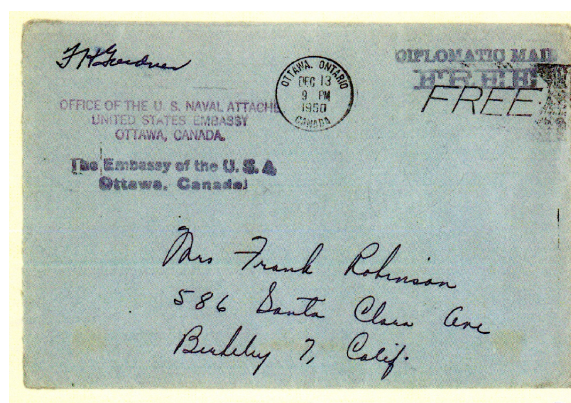 F H Gardner
OFFICE OF THE U. S. NAVAL ATTACHE
UNITED STATES EMBASSY
OTTAWA, CANADA.
The Embassy of the U. S. A.
Ottawa, Canada
OTTAWA, ONTARIO
DEC 13
9 PM
1950
CANADA
DIPLOMATIC MAIL
FREE
FREE
Mrs Frank Robinson
586 Santa Clara Ave
Berkeley 7, Calif.